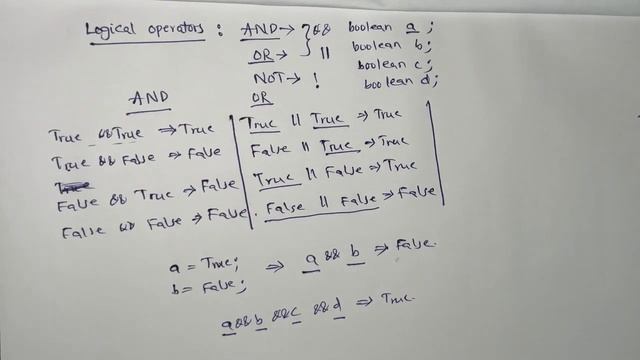 Logical operators : AND → && boolean a ;
OR → || boolean b ;
NOT → ! boolean c ;
boolean d ;
AND
True && True ⇒ True
True && False ⇒ False
True
False && True → False
False && False ⇒ False
OR
True || True ⇒ True
False || True ⇒ True
True || False ⇒ True
False || False ⇒ False
a = True;
b = False;
⇒ a && b ⇒ False.
a && b && c && d ⇒ True.